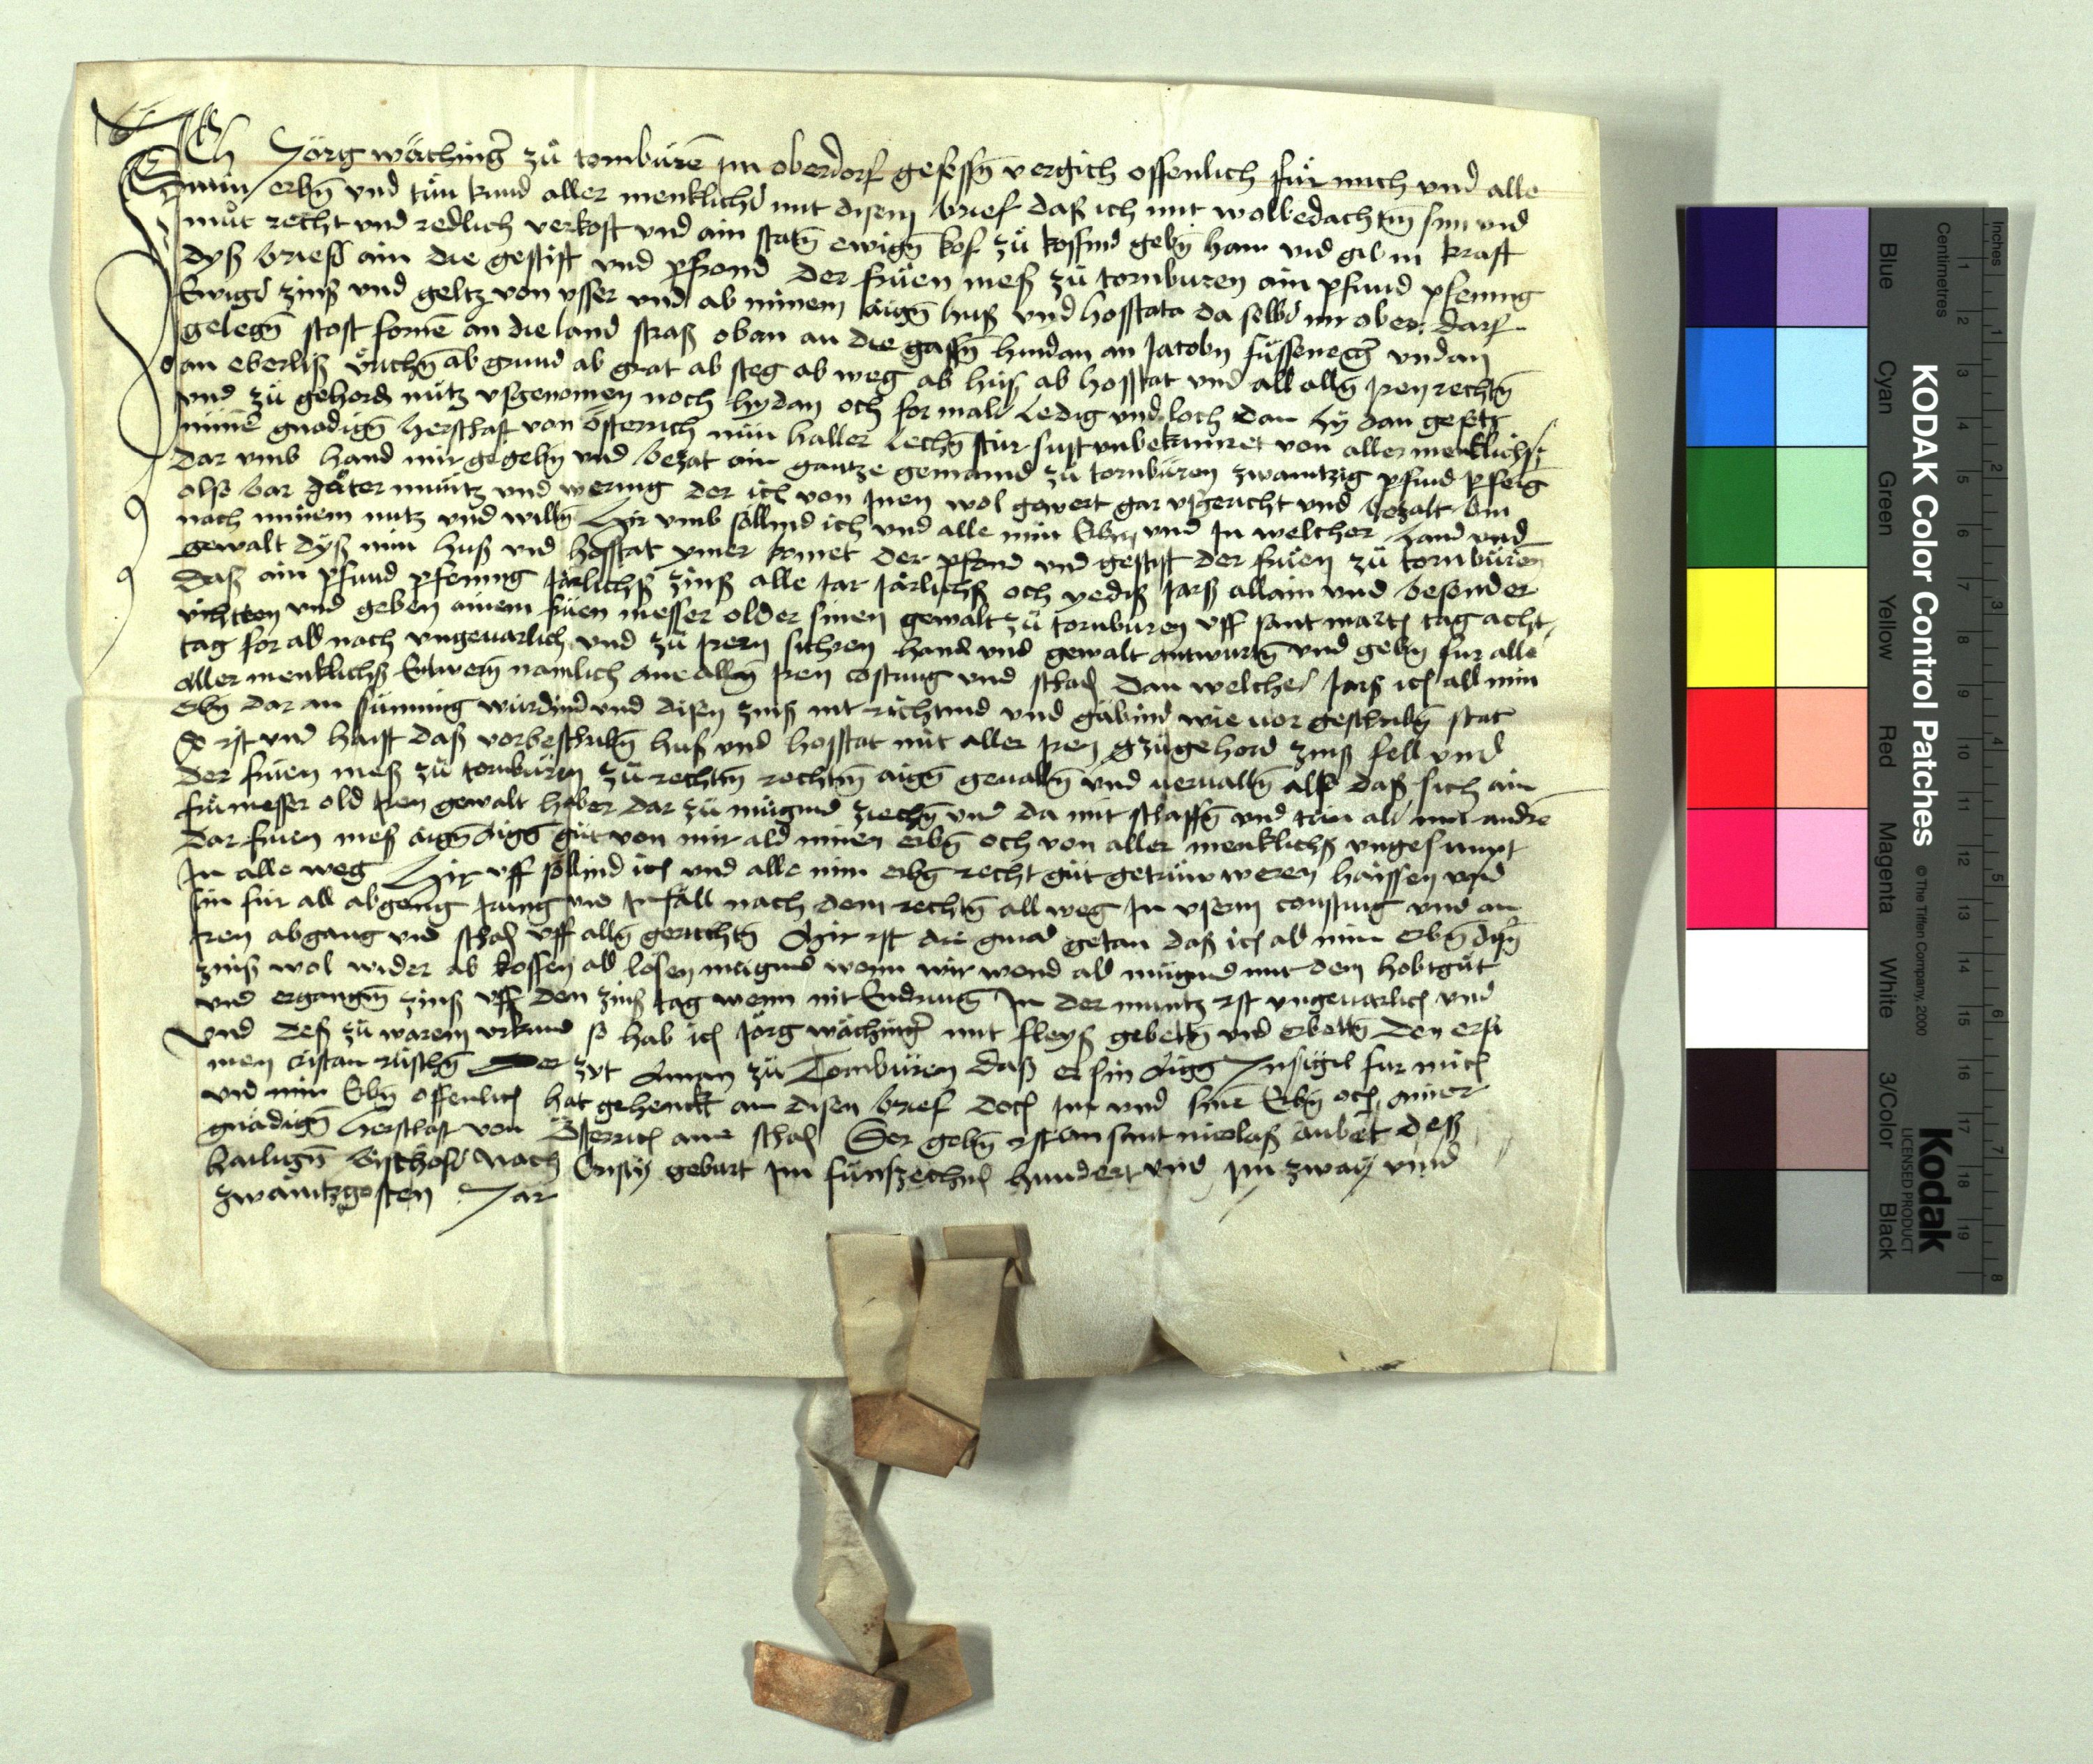 Ich Jörg wäching̃ zů tornbúrẽ jm oberdorf gesessñ vergich offenlich für mich vnd alle
min erbñ vnd tůn kund aller menklichs mit disem brief das ich mit wolbedachtm̃ sin vnd
můt recht vnd redlich verkoft vnd ain statñ ewigñ kof zů koffend gebñ han vnd gib in kraft
dyß briefs ain die gestift vnd pfrond der frůen meß zů tornburen ain pfund pfening
Ewigs zinß vnd geltz von vsser vnd ab minem aignñ huß vnd hofstatt da selbs im ober darf
gelegñ stost fornẽ an die land straß oban an die gassñ hindan an Jacobn fůssenegg̃ vndan
an eberliß ůlrichñ ab grund ab grat ab steg ab weg ab huß ab hofstat vnd all allñ jren rechtñ
vnd zů gehord nútz vsgenomen noch hindan och formals Ledig vnd loch dan hÿ dan gesetz
minẽ gnadigñ herschaft von österrich nún haller lechñ stúr sust vnbekúmret von aller menklichs
dar vmb hand mir gegebñ vnd bezalt ain gantze gemaind zů tornbúren zwaintzig pfund pfeig
alß bar gůter múntz vnd werung der ich von jnen wol gewert gar vsgericht vnd bezalt bin
nach minem nutz vnd willñ Hir vmb söllind ich vnd alle min Erbñ vnd in welcher hand vnd
gewalt dÿß min huß vnd hofstat ymer komet der pfrond vnd gestift der frůen zů tornbúren
daß ain pfund pfening Järlichß zinß alle Jar Järlichß och yedis Jarß allain vnd besonder
richtten vnd geben ainem frůen messer older sinen gewalt zů tornburen vff sant marti tag acht
tag for ald nach vngeuarlich vnd zů jren sichren hand vnd gewalt antwurtñ vnd gebñ fur alle
aller menklichß Entwern̄ namlich ane allñ jren costung vnd schad Dan welches Jarß ich all min
erbñ dar an súmmig wúrdind vnd disen zinß nit richtind vnd gäbind wie vor geschribñ stat
So ist vnd haist daß vorbeschribñ huß vnd hofstat mit aller jren zůgehord zinß fell vnd
der frůen meß zů tornbúren zů rechtm̃ rechtm̃ aigñ geuallñ vnd veruallñ also daß sich ain
frůmesser old jren gewalt haber dar zů mugind ziechñ vnd da mit schaffñ vnd tůn als mit andrẽ
dar frůen meß aignñ aigñ gůt von mir ald minen erbñ och von aller menklichß vngesumpt
In alle weg Hir vff söllind ich vnd alle min erbñ recht gůt getrúw weren haissen vnd
sin fúr all abgeng jrung vnd jnfäll nach dem rechtñ all weg in vserm costung vnd an
jren abgang vnd schad vff allñ gerichtñ Mir ist die gnad getan daß ich ald min erbñ disñ
zinß wol wider ab koffen ald lösen mugind wenn wir wend ald mugind mit dem hobtgůt
vnd ergangñ zinß vff den zinß tag wenn mit Endrung in der muntz ist vngeuarlich vnd
Vnd deß zů warem vrkund so hab ich Jörg wäching̃ mit fleyß gebettñ vnd erbettñ den ersa
men cristan rúschñ Der zyt Aman zů Tornbúren daß er sin aigñ Insigil fur mich
vnd min Erbñ offenlich hat gehenckt an disen brief doch jm vnd sinẽ Erbñ och miner
gnädigñ herschaft von österrich ane schad Der gebñ ist an sant nicolaß aubet deß
hailignñ bischofs nach Cristi gebúrt jm fúnfzechnd hundert vnd jm zwaij vnnd
zwäintzgosten Jar
KODAK Color Control Patches © The Tiffen Company, 2000
Kodak LICENSED PRODUCT
Blue Cyan Green Yellow Red Magenta White 3/Color Black
Centimetres 1 2 3 4 5 6 7 8 9 10 11 12 13 14 15 16 17 18 19
Inches 1 2 3 4 5 6 7 8